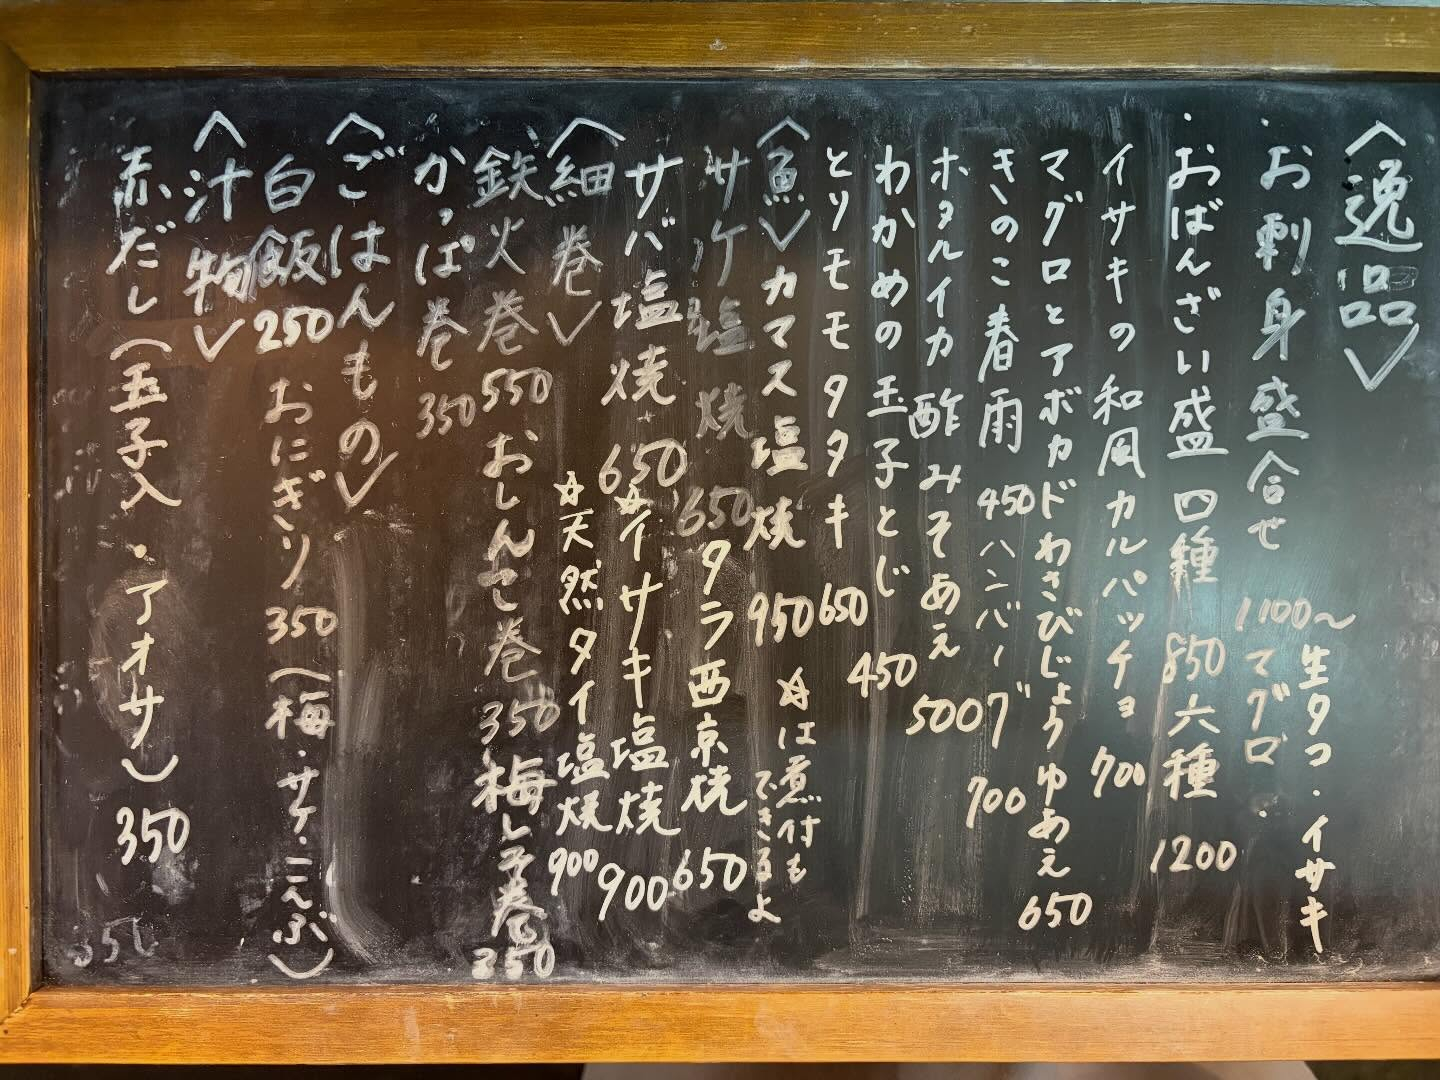 〈逸品〉
・お刺身盛合せ 1100〜 生タコ・イサキ
マグロ・
・おばんざい盛 四種 850 六種 1200
イサキの和風カルパッチョ 700
マグロとアボカドわさびじょうゆあえ 650
きのこ春雨 450 ハンバーグ 700
ホタルイカ酢みそあえ 500
わかめの玉子とじ 450
とりモモタタキ 650
〈魚〉カマス塩焼 950 ☆は煮付も
できるよ
サケ塩焼 650 タラ西京焼 650
サバ塩焼 650 ☆イサキ塩焼 900
☆天然タイ塩焼 900
〈細巻〉
鉄火巻 550 おしんこ巻 350 梅しそ巻 350
かっぱ巻 350
〈ごはんもの〉
白飯 250 おにぎり 350 (梅・サケ・こんぶ)
〈汁物〉
赤だし(玉子入・アオサ) 350
350